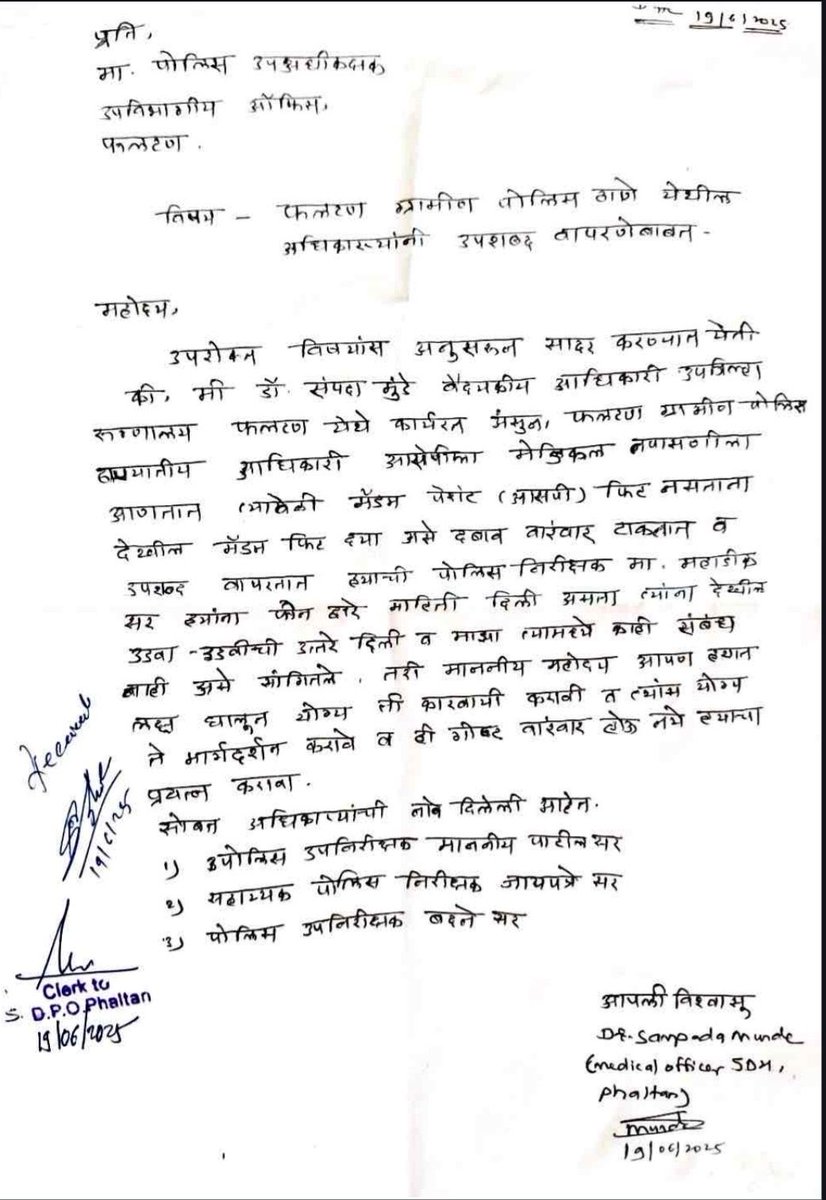 19/6/2025
प्रति,
मा. पोलिस उपअधीकक्षक
उपविभागीय ऑफिस,
फलटण.
विषय - फलटण ग्रामीण पोलिस ठाणे येथील
अधिकाऱ्यांनी उपशब्द वापरणेबाबत -
महोदय,
उपरोक्त विषयांस अनुसरून सादर करण्यात येती
की, मी डॉ. संपदा मुंडे वैदयकीय आधिकारी उपजिल्हा
रुग्णालय फलटण येथे कार्यरत असुन, फलटण ग्रामीण पोलिस
आधिकारी आरोपीला मेडिकल तपासणीला
आणतात त्यावेळी मॅडम पेशंट (आरोपी) फिट नसताना
देखील मॅडम फिट द्या असे दबाव वारंवार टाकतात व
उपशब्द वापरतात ह्याची पोलिस निरीक्षक मा. महाडीक
सर ह्यांना फोन द्वारे माहिती दिली असता त्यांना देखील
उडवा -उडवीची उत्तरे दिली व माझा त्यामध्ये काही संबंध
नाही असे सांगितले. तरी माननीय महोदय आपण ह्यात
लक्ष घालून योग्य ती कारवायी करावी व त्यांस योग्य
ते मार्गदर्शन करावे व ही गोष्ट वारंवार होऊ नये ह्याचा
प्रयत्न करावा.
सोबत अधिकाऱ्यांची नावे दिलेली आहेत.
१) पोलिस उपनिरीक्षक माननीय पाटील सर
२) सहाय्यक पोलिस निरीक्षक जायपत्रे सर
३) पोलिस उपनिरीक्षक बदने सर
Received
19/6/25
Clerk to
S. D.P.O. Phaltan
19/06/2025
आपली विश्वासू
Dr. Sampada Munde
(medical officer SDH,
Phaltan)
Munde
19/06/2025